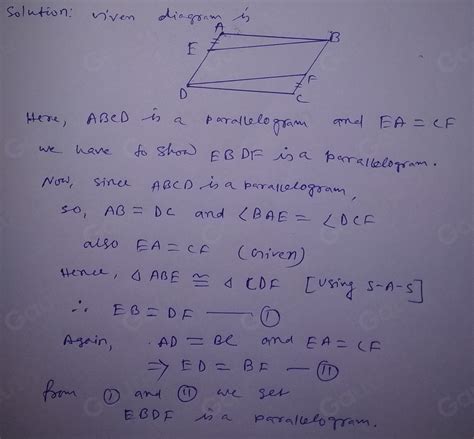 Solution: Given diagram is
A
B
E
F
D
C
Here, ABCD is a parallelogram and EA = CF
we have to show EBDF is a parallelogram.
Now, since ABCD is a parallelogram,
so, AB = DC and ∠BAE = ∠DCF
also EA = CF (Given)
Hence, △ ABE ≅ △ CDF [Using S-A-S]
∴ EB = DF — Ⓘ
Again, AD = BC and EA = CF
⇒ ED = BF — Ⓘⓘ
from Ⓘ and Ⓘⓘ we get
EBDF is a parallelogram.